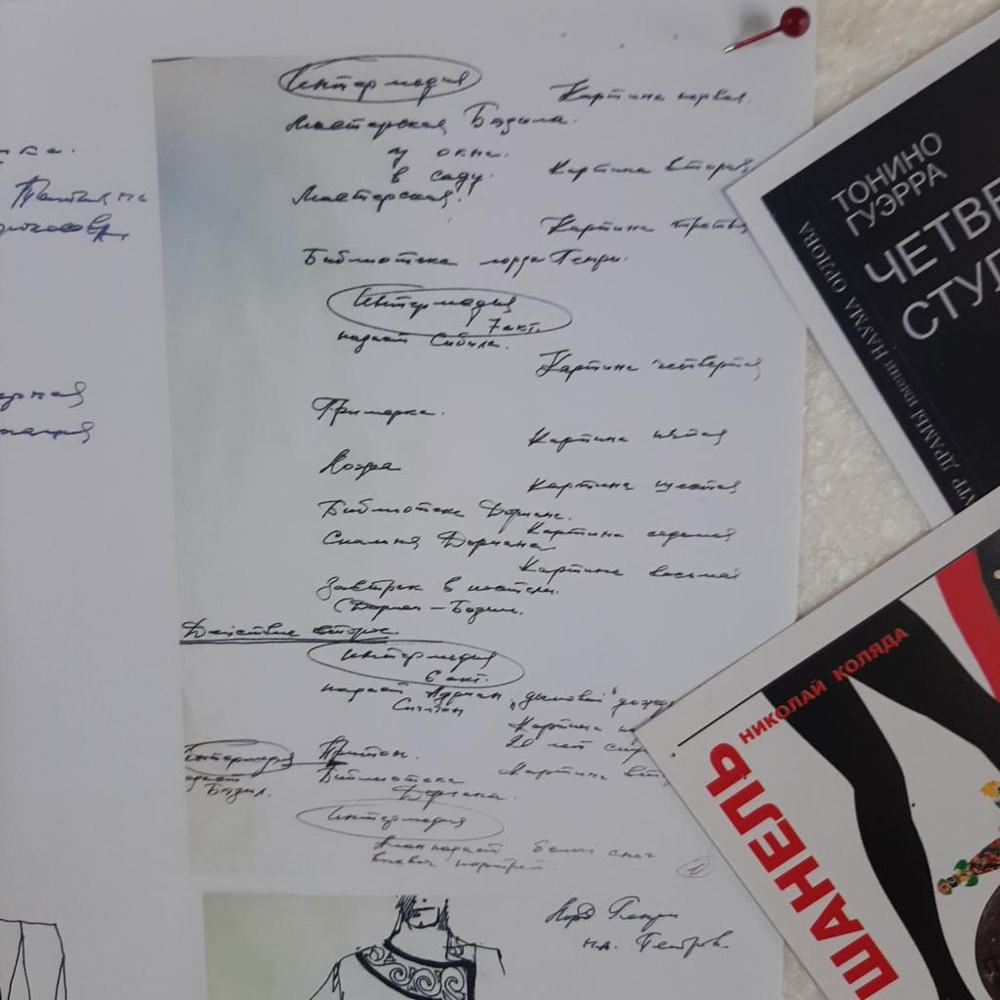 Интермедия
Картина первая.
Мастерская Бэзила.
у окна.
в саду.
Картина вторая
Мастерская.
Картина третья
Библиотека лорда Генри.
Интермедия
7 акт.
падает Сибила.
Картина четвертая
Примерка.
Картина пятая
Ложа
Картина шестая
Библиотека Дориана.
Картина седьмая
Спальня Дориана
Картина восьмая
Завтрак в постели.
(Дориан – Бэзил.
Действие второе
Интермедия
6 акт.
падает Адриан „дымовой“
Синглтон
Картина
20 лет
Интермедия
Притон.
падает
Бэзил.
Библиотека
Дориана.
Картина
Интермедия
Алан падает белый снег
портрет.
Лорд Генри
на. Петров.
ТОНИНО
ГУЭРРА
ЧЕТВЕ
СТУ
ТР ДРАМЫ имени НАУМА ОРЛОВА
НИКОЛАЙ КОЛЯДА
ШАНЕЛЬ